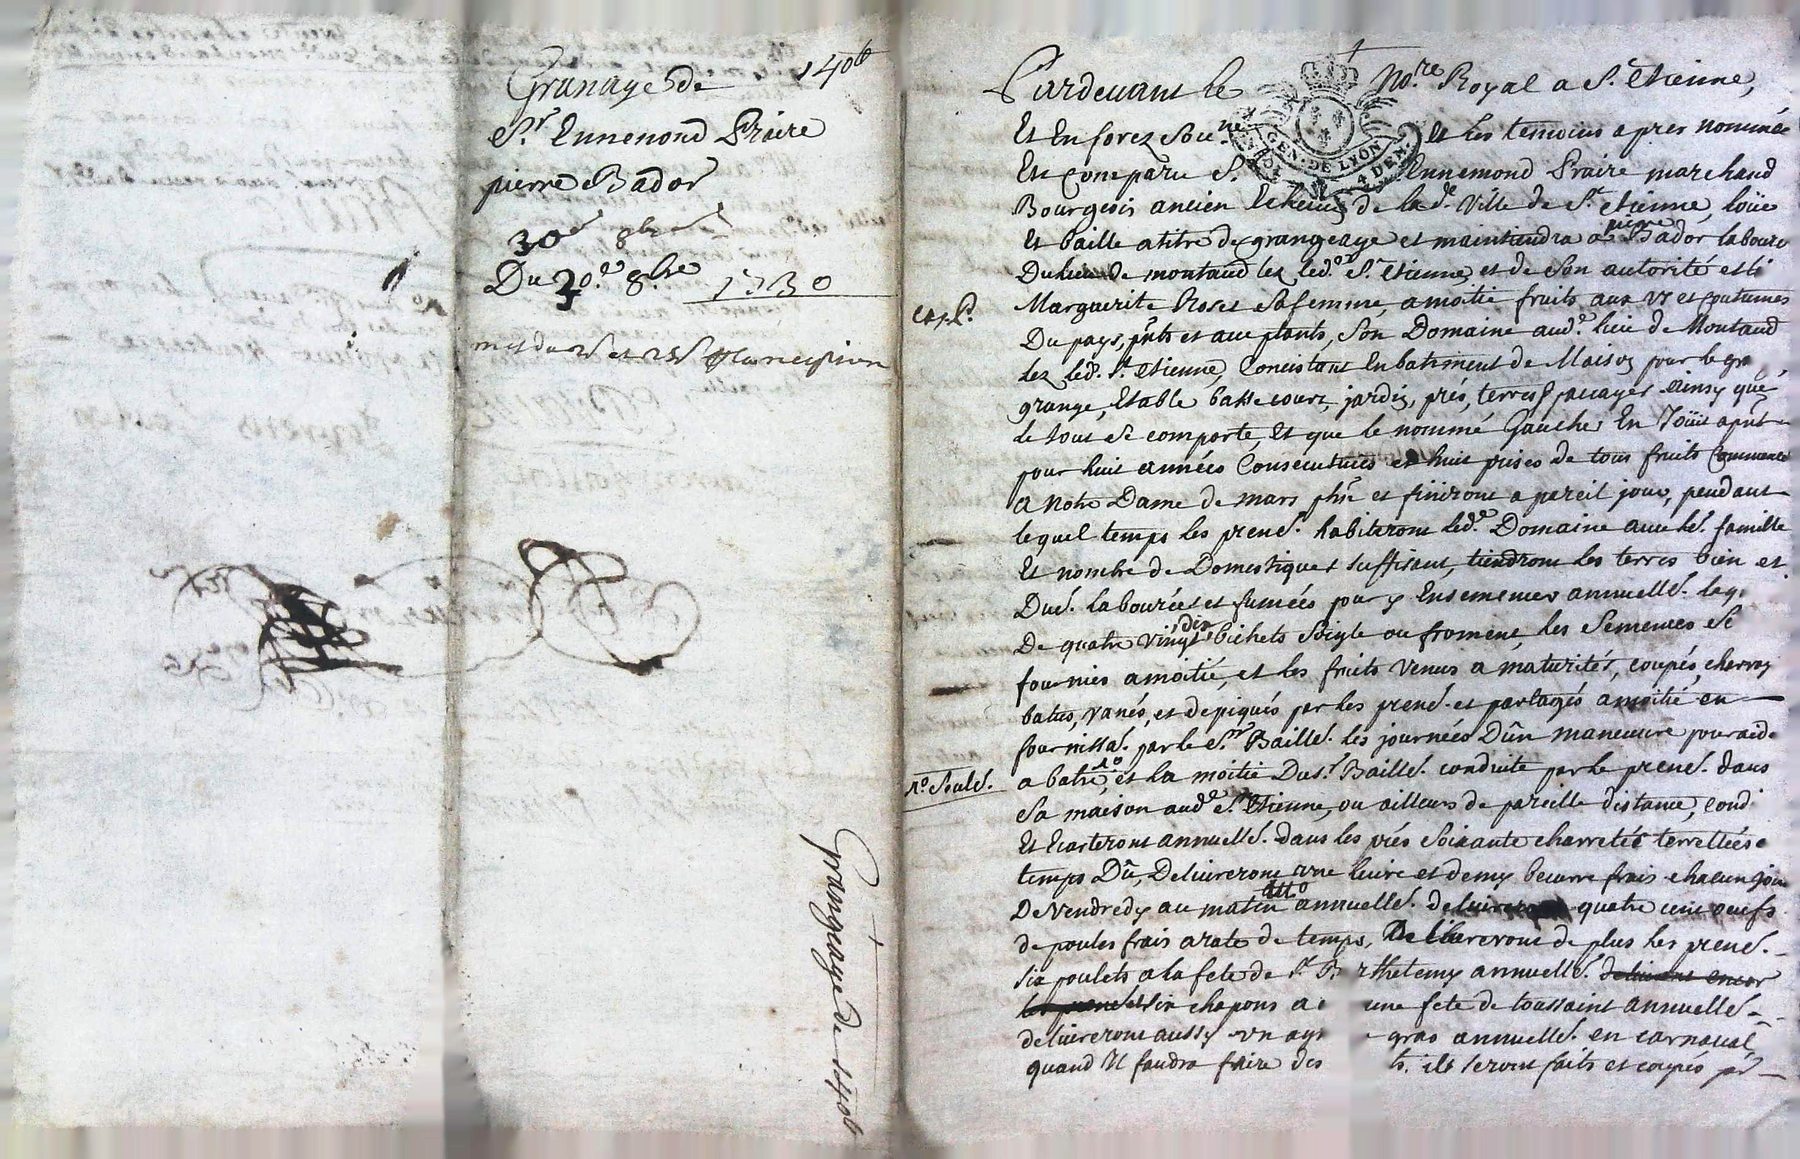 Granage de 140tt
Sr. Ennemond Praire
pierre Bador
30e 8bre
Du 30e. 8bre 1730
Grangeage de 140tt
Pardevant le No.re Royal a St. Etienne,
Et En forez Sou.né Et les temoins apres nommés
GEN. DE LYON
4 DEN.
Est Comparu Sr. Ennemond Praire marchand
Bourgeois ancien Echevin de lad.e Ville de St. etienne, loüe
Et baille a titre de grangeage et maintiendra a pierre Bador laboure
Du lieu de montaud lez led.t St. Etienne, et de Son autorité est
Marguerite Roset Sa femme, a moitié fruits aux Us et Coutumes
Du pays, pnts et acceptants, Son Domaine aud.t lieu de Montaud
Lez led. St. Etienne, Concistant En batiment de Maison pour le gra
grange, Etable basse cour, jardin, prés, terres, pacages ainsy que
le tout Se comporte, Et que le nommé Gaucher En Joüit apnt
pour huit années Consecutives et huit prises de tous fruits Commence
a Notre Dame de mars pchn et finiront a pareil jour, pendant
lequel temps les pren.s habiteront led.t Domaine avec les. famille
Et nombre de Domestiques suffisent, tiendront les terres bien et
Duë. labourées et fumées pour y Ensemencer annuelle.
De quatre vingt dix bichets Seigle ou froment, les Semences Se
fournies a moitié, et les fruits venus a maturités, coupés,
batus, vanés, et depiqués par les pren.s et partagés a moitié en
fournissa. par le Sr. Baille. les journées D'ûn maneuvre pour aide
a batre, et la moitié Du Sr. Baille. conduite par le pren. dans
Sa maison aud.t St. Etienne, ou ailleurs de pareille distance, cond
Et Ecarteront annuelle. dans les prés Soixante charretées terrellées
temps Dû, Delivreront une livre et demy beurre frais chacun jou
De Vendredy au matin annuelle. delivreront quatre cent oeufs
de poules frais a rate de temps, Delivreront de plus les pren.
Six poulets a la fete de St. Barthelemy annuelle. delivront encor
les pren. Six chapons a une fete de toussaint annuelle.
delivreront aussy un gras annuelle. en carnaval
quand Il faudra faire des ils seront faits et coupés par